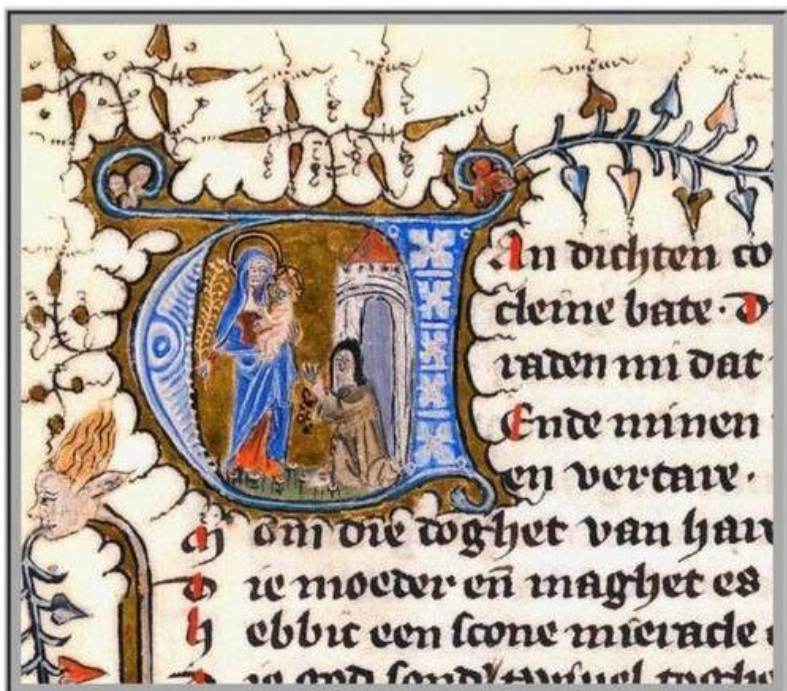 An dichten co
cleine bate. D
raden mi dat
Ende minen
en vertare.
om die doghet van hare
ie moeder en̄ maghet es
hebbic een scone mieracle